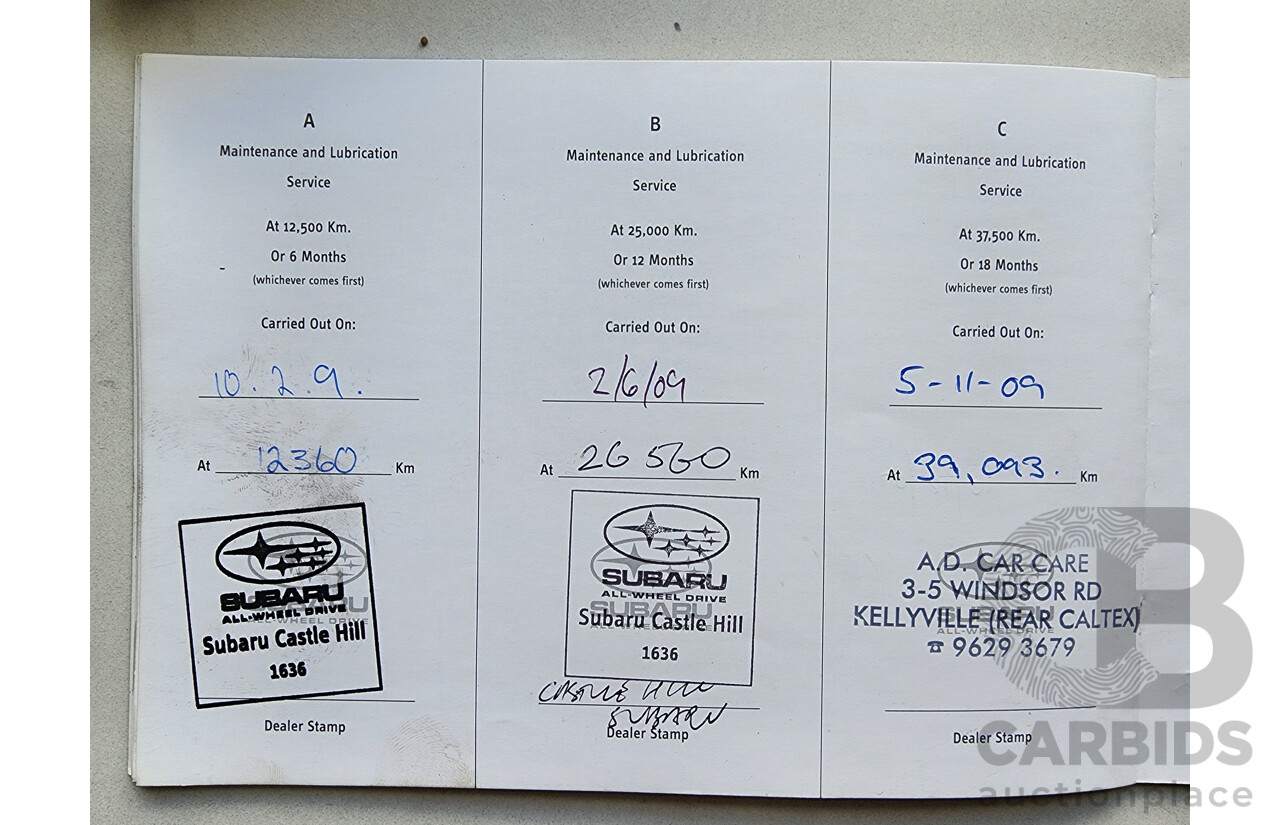 A
Maintenance and Lubrication
Service
At 12,500 Km.
Or 6 Months
(whichever comes first)
Carried Out On:
10.2.9.
At 12360 Km
SUBARU
ALL-WHEEL DRIVE
Subaru Castle Hill
1636
Dealer Stamp
B
Maintenance and Lubrication
Service
At 25,000 Km.
Or 12 Months
(whichever comes first)
Carried Out On:
2/6/09
At 26 560 Km
SUBARU
ALL-WHEEL DRIVE
SUBARU
Subaru Castle Hill
1636
CASTLE HILL
SUBARU
Dealer Stamp
C
Maintenance and Lubrication
Service
At 37,500 Km.
Or 18 Months
(whichever comes first)
Carried Out On:
5-11-09
At 39,093. Km
A.D. CAR CARE
3-5 WINDSOR RD
KELLYVILLE (REAR CALTEX)
ALL-WHEEL DRIVE
☎ 9629 3679
Dealer Stamp
B
CARBIDS
auctionplace